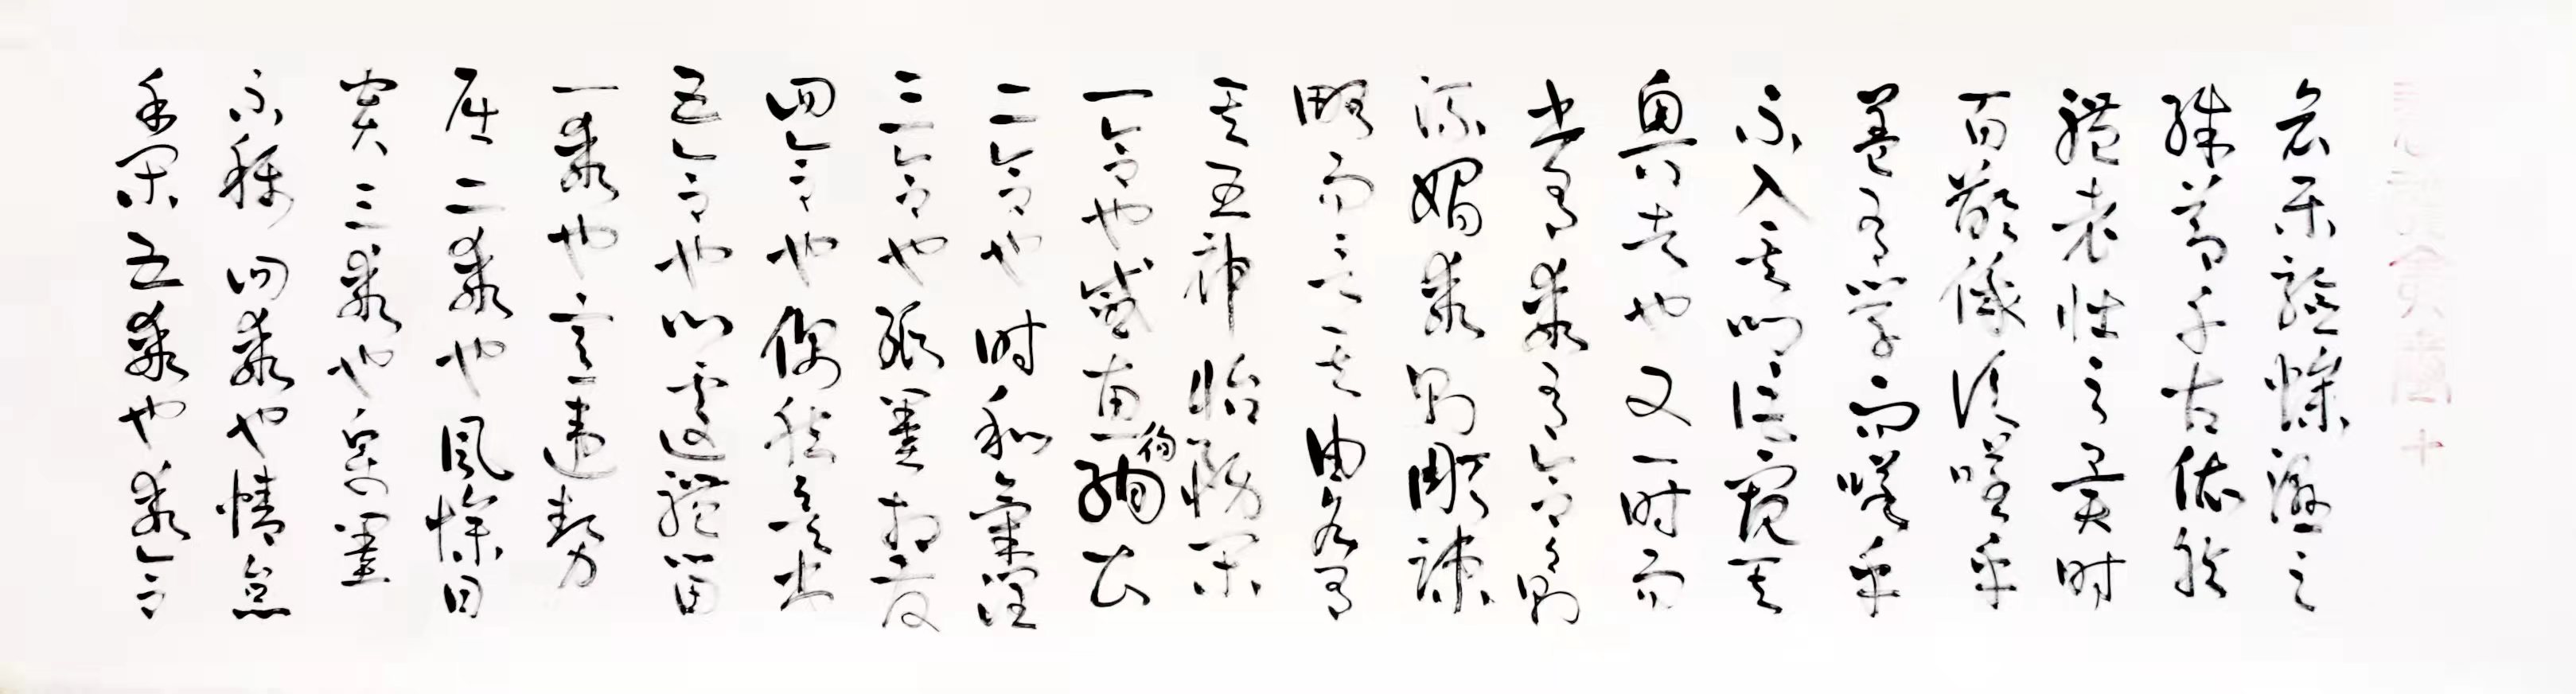 哀樂驗燥濕之
殊節千古依然
體老壯之異時
百齡俄頃嗟乎
蓋有學而嗟乎
不入其門詎窺其
奧者也又一時而
書有乖有合合則
流媚乖則彫疎
略而言其由各有
其五神怡務閑
一合也感惠徇知
二合也時和氣潤
三合也紙墨相發
四合也偶然欲書
五合也心遽體留
一乖也意違勢
屈二乖也風燥日
炎三乖也紙墨
不稱四乖也情怠
手闌五乖也乖合